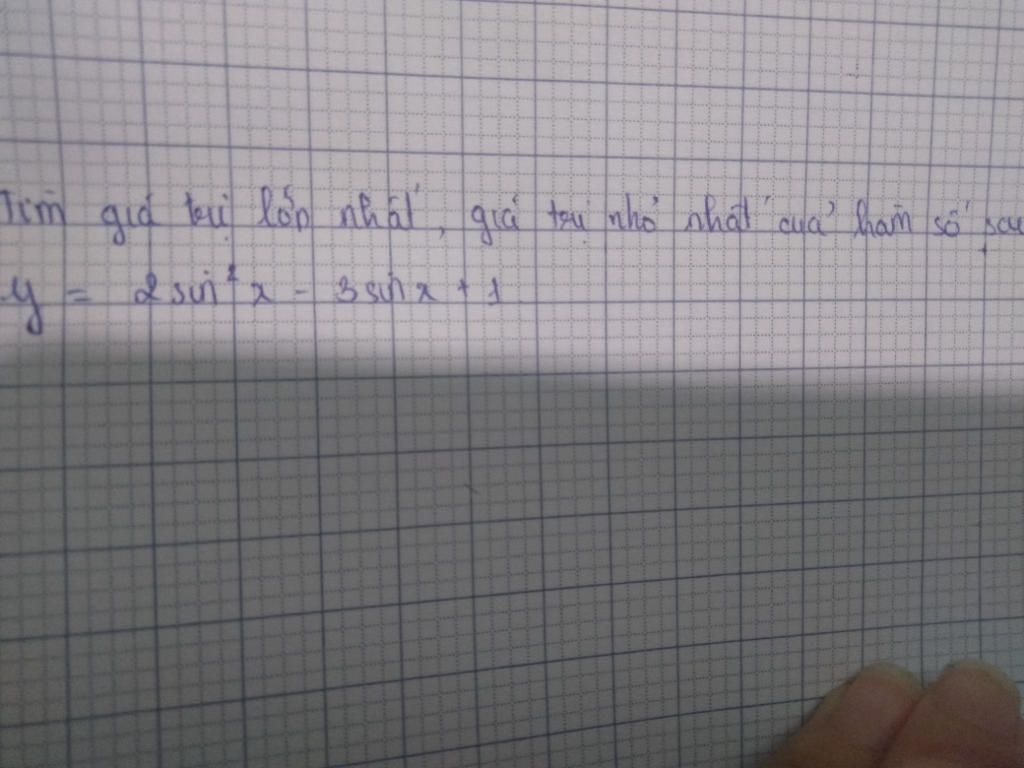 Tìm giá trị lớn nhất, giá trị nhỏ nhất của hàm số sau
y = 2 sin² x - 3 sin x + 1